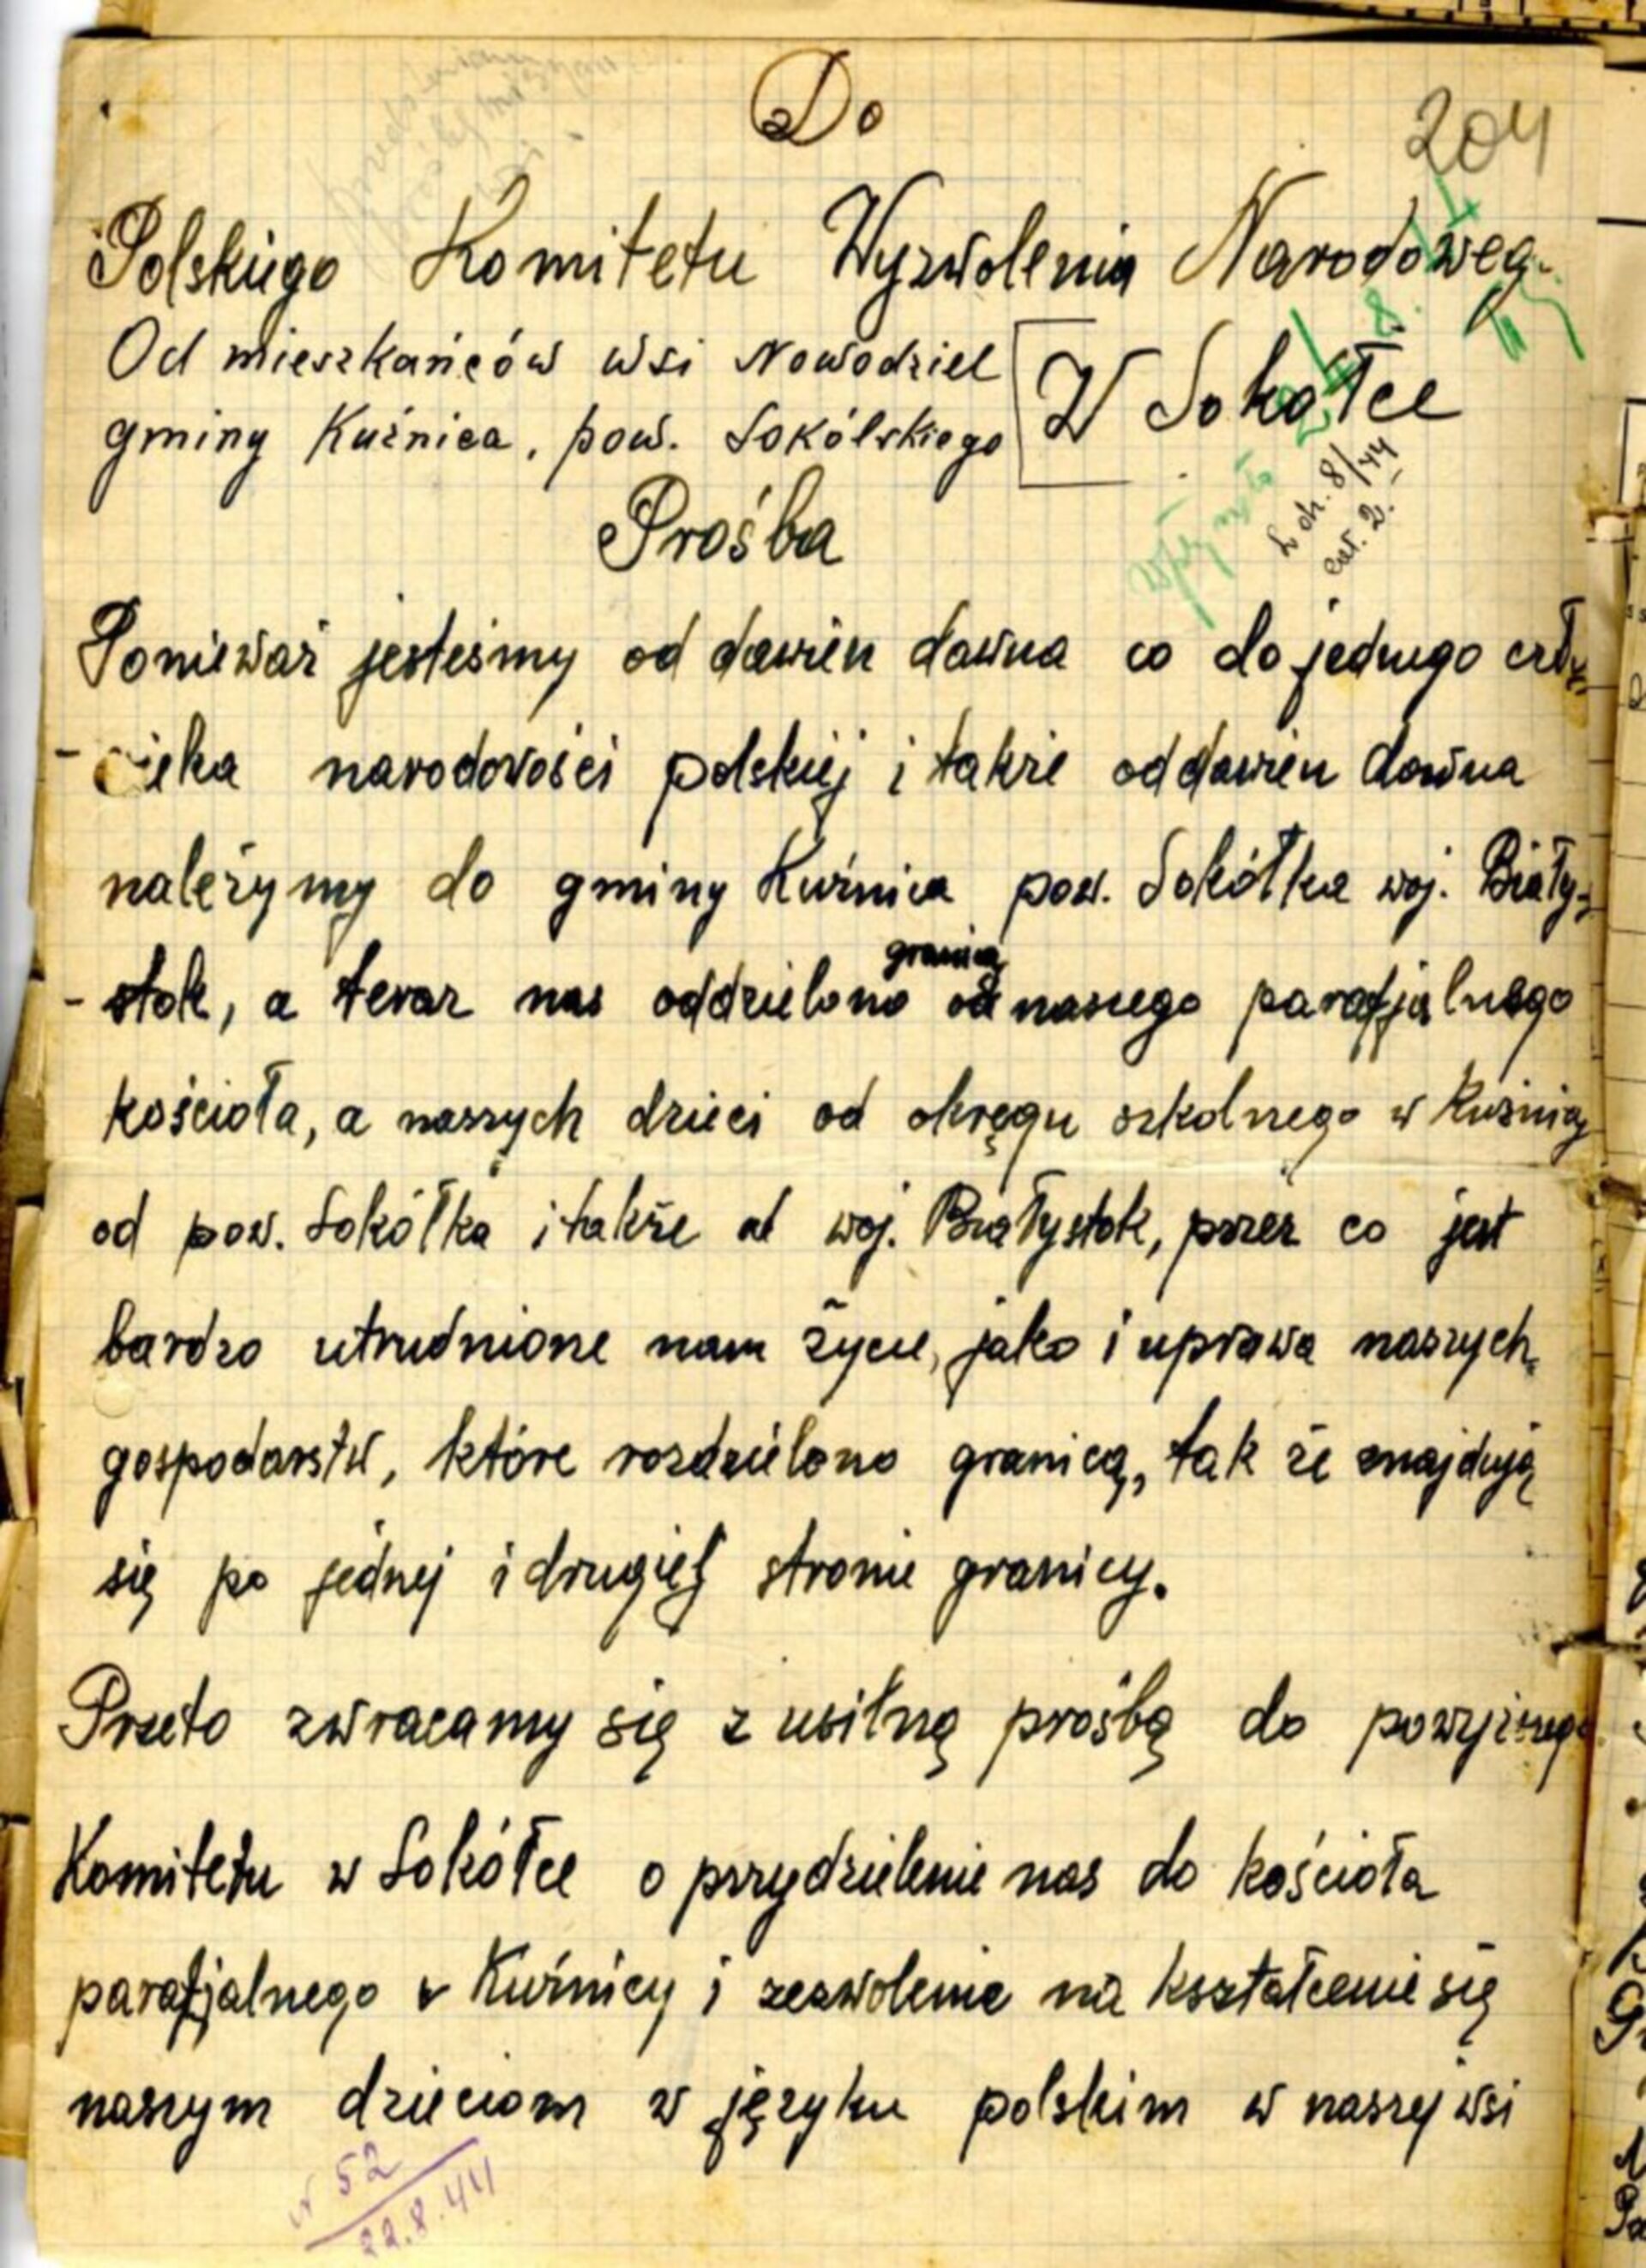 Do
204
Polskiego Komitetu Wyzwolenia Narodoweg
Od mieszkańców wsi Nowodziel
gminy Kuźnica, pow. Sokólskiego
W Sokółce
Wpłynęło
L dz. 8/44
Prośba
Ponieważ jesteśmy od dawien dawna co do jednego czło-
- wieka narodowości polskiej i także od dawien dawna
należymy do gminy Kuźnica pow. Sokółka woj. Biały-
granicą
- stok, a teraz nas oddzielono od naszego parafjalnego
kościoła, a naszych dzieci od okręgu szkolnego w Kuźnicy
od pow. Sokółka i także od woj. Białystok, przez co jest
bardzo utrudnione nam życie, jako i uprawa naszych
gospodarstw, które rozdzielono granicą, tak że znajdują
się po jednej i drugiej stronie granicy.
Przeto zwracamy się z usilną prośbą do powyższego
Komitetu w Sokółce o przydzielenie nas do kościoła
parafjalnego w Kuźnicy i zezwolenie na kształcenie się
naszym dzieciom w języku polskim w naszej wsi
N 52
22.8.44